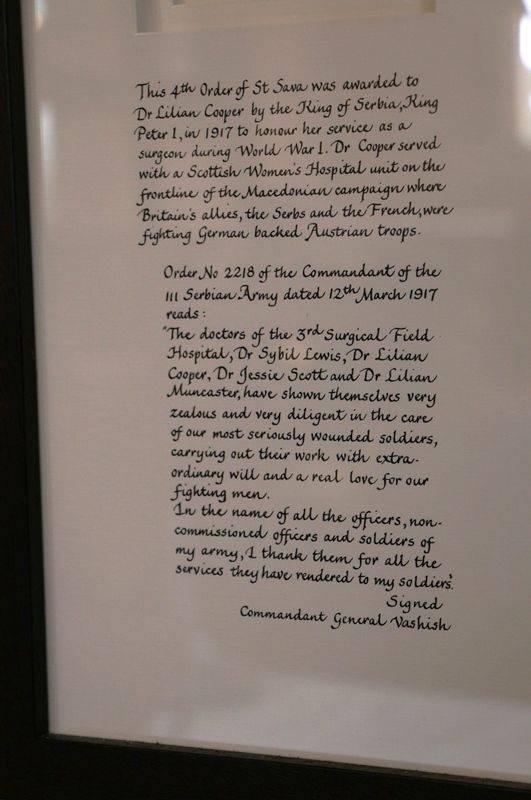 This 4th Order of St Sava was awarded to
Dr Lilian Cooper by the King of Serbia, King
Peter I, in 1917 to honour her service as a
surgeon during World War I. Dr Cooper served
with a Scottish Women's Hospital unit on the
frontline of the Macedonian campaign where
Britain's allies, the Serbs and the French, were
fighting German backed Austrian troops.
Order No 2218 of the Commandant of the
III Serbian Army dated 12th March 1917
reads:
"The doctors of the 3rd Surgical Field
Hospital, Dr Sybil Lewis, Dr Lilian
Cooper, Dr Jessie Scott and Dr Lilian
Muncaster, have shown themselves very
zealous and very diligent in the care
of our most seriously wounded soldiers,
carrying out their work with extra-
ordinary will and a real love for our
fighting men.
In the name of all the officers, non-
commissioned officers and soldiers of
my army, I thank them for all the
services they have rendered to my soldiers".
Signed
Commandant General Vashish